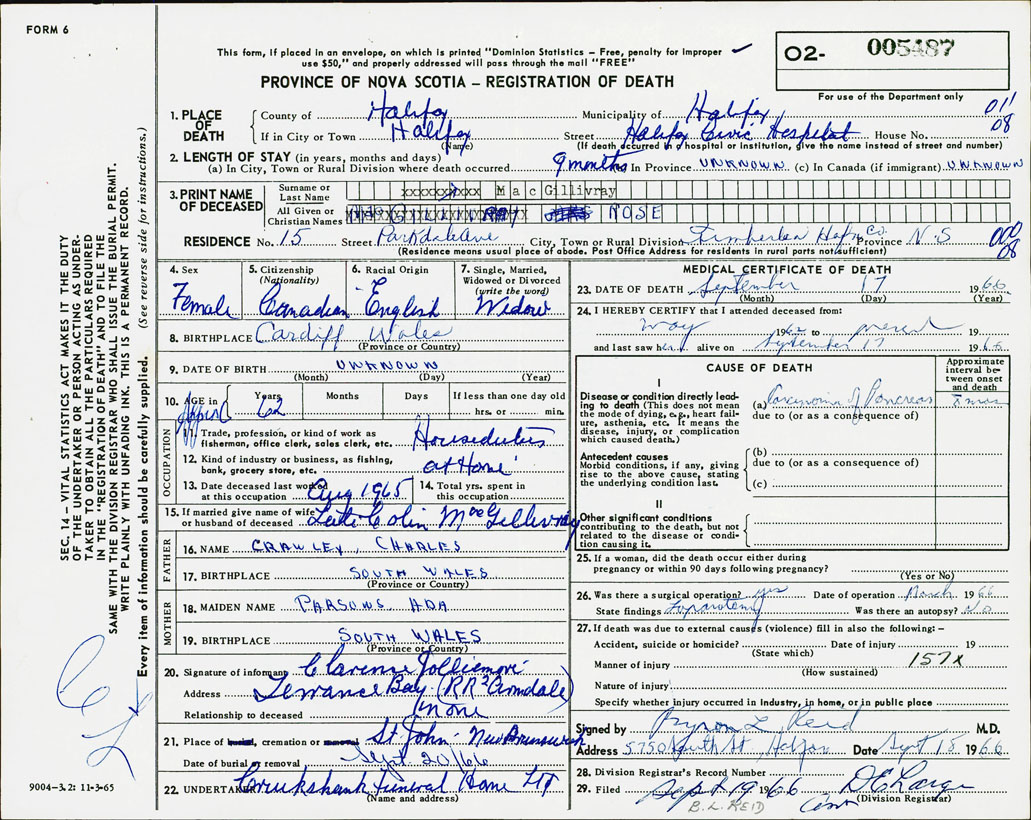 FORM 6
This form, if placed in an envelope, on which is printed "Dominion Statistics – Free, penalty for improper
use $50," and properly addressed will pass through the mail "FREE"
PROVINCE OF NOVA SCOTIA – REGISTRATION OF DEATH
O2- 005487
For use of the Department only
1. PLACE OF DEATH County of Halifax Municipality of Halifax 011
If in City or Town Halifax Street Halifax Civic Hospital House No. 08
(Name) (If death occurred in a hospital or institution, give the name instead of street and number)
2. LENGTH OF STAY (in years, months and days)
(a) In City, Town or Rural Division where death occurred 9 months In Province UNKNOWN (c) In Canada (if immigrant) UNKNOWN
3. PRINT NAME OF DECEASED Surname or Last Name MacGillivray
All Given or Christian Names ROSE
RESIDENCE No. 15 Street Parkdale Ave City, Town or Rural Division Timberlea Hfx Co. Province N.S 000
(Residence means usual place of abode. Post Office Address for residents in rural parts not sufficient) 08
4. Sex Female
5. Citizenship (Nationality) Canadian
6. Racial Origin English
7. Single, Married, Widowed or Divorced (write the word) Widow
8. BIRTHPLACE Cardiff Wales
(Province or Country)
9. DATE OF BIRTH UNKNOWN
(Month) (Day) (Year)
10. AGE in Approx Years 62 Months Days If less than one day old hrs. or min.
OCCUPATION
11. Trade, profession, or kind of work as fisherman, office clerk, sales clerk, etc. Houseduties
12. Kind of industry or business, as fishing, bank, grocery store, etc. at Home
13. Date deceased last worked at this occupation Aug 1965 14. Total yrs. spent in this occupation
15. If married give name of wife or husband of deceased Late Colin MacGillivray
FATHER
16. NAME CRAWLEY, CHARLES
17. BIRTHPLACE SOUTH WALES
(Province or Country)
MOTHER
18. MAIDEN NAME PARSONS ADA
19. BIRTHPLACE SOUTH WALES
(Province or Country)
20. Signature of informant Clarence Jolliemore
Address Terrance Bay (RR2 Armdale)
Relationship to deceased none
21. Place of burial, cremation or removal St. John New Brunswick
Date of burial or removal Sept. 20/66
22. UNDERTAKER Cruikshank Funeral Home LTD
(Name and address)
MEDICAL CERTIFICATE OF DEATH
23. DATE OF DEATH September 17 1966
(Month) (Day) (Year)
24. I HEREBY CERTIFY that I attended deceased from:
to present 19
and last saw her alive on September 17 1966
CAUSE OF DEATH
Approximate interval between onset and death
I
Disease or condition directly leading to death (This does not mean the mode of dying, e.g., heart failure, asthenia, etc. It means the disease, injury, or complication which caused death.)
(a) Carcinoma of Pancreas mos
due to (or as a consequence of)
Antecedent causes
Morbid conditions, if any, giving rise to the above cause, stating the underlying condition last.
(b)
due to (or as a consequence of)
(c)
II
Other significant conditions contributing to the death, but not related to the disease or condition causing it.
25. If a woman, did the death occur either during pregnancy or within 90 days following pregnancy?
(Yes or No)
26. Was there a surgical operation? yes Date of operation March 1966
State findings Laparotomy Was there an autopsy? No
27. If death was due to external causes (violence) fill in also the following:–
Accident, suicide or homicide? Date of injury 19
(State which)
Manner of injury 157x
(How sustained)
Nature of injury
Specify whether injury occurred in industry, in home, or in public place
Signed by Byron L Reid M.D.
Address 5750 South St. Halifax Date Sept 18 1966
28. Division Registrar's Record Number
29. Filed Sept 19 1966
B.L. REID (Division Registrar)
SEC. 14 – VITAL STATISTICS ACT MAKES IT THE DUTY
OF THE UNDERTAKER OR PERSON ACTING AS UNDER-
TAKER TO OBTAIN ALL THE PARTICULARS REQUIRED
IN THE "REGISTRATION OF DEATH" AND TO FILE THE
SAME WITH THE DIVISION REGISTRAR WHO SHALL ISSUE THE BURIAL PERMIT.
WRITE PLAINLY WITH UNFADING INK. THIS IS A PERMANENT RECORD.
Every item of information should be carefully supplied. (See reverse side for instructions.)
9004-3.2: 11-3-65